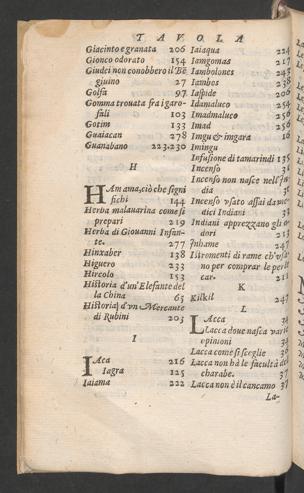 TAVOLA
Giacinto e granata 206
Gionco odorato 154
Giudei non conobbero il Bē
giuino 27
Golfa 97
Gomma trouata fra i garo-
fali 103
Gotim 133
Guaiacan 278
Guanabano 223.230
H
HAm ama, ciò che signi
fichi 144
Herba malauarina come si
prepari 219
Herba di Giouanni Infan-
te. 277
Hinxaber 138
Higuero 233
Hircolo 153
Historia d'un'Elefante del
la China 65
Historia d'vn Mercante
di Rubini 203
I
IAca 216
Iagra 125
Iaiama 222
Iaiaqua 224
Iamgomas 217
Iambolones 243
Iambos 238
Iaspide 206
Idamaluco 254
Imadmaluco 256
Imad 256
Imgu & imgara 16
Imingu
Infusione di tamarindi 135
Incenso 36
Incenso non nasce nell'In-
dia
Incenso vsato assai da me-
dici Indiani 38
Indiani apprezzano gli o-
dori 213
Inhame 247
Istromenti di rame ch'vsa-
no per comprar le per le
car. 211
K
Kilkil 247
L
LAcca 34
Lacca doue nasca varie
opinioni 34
Lacca come si sceglie 36
Lacca non hà le facultà del
charabe. 37
Lacca non è il cancamo 37
La-